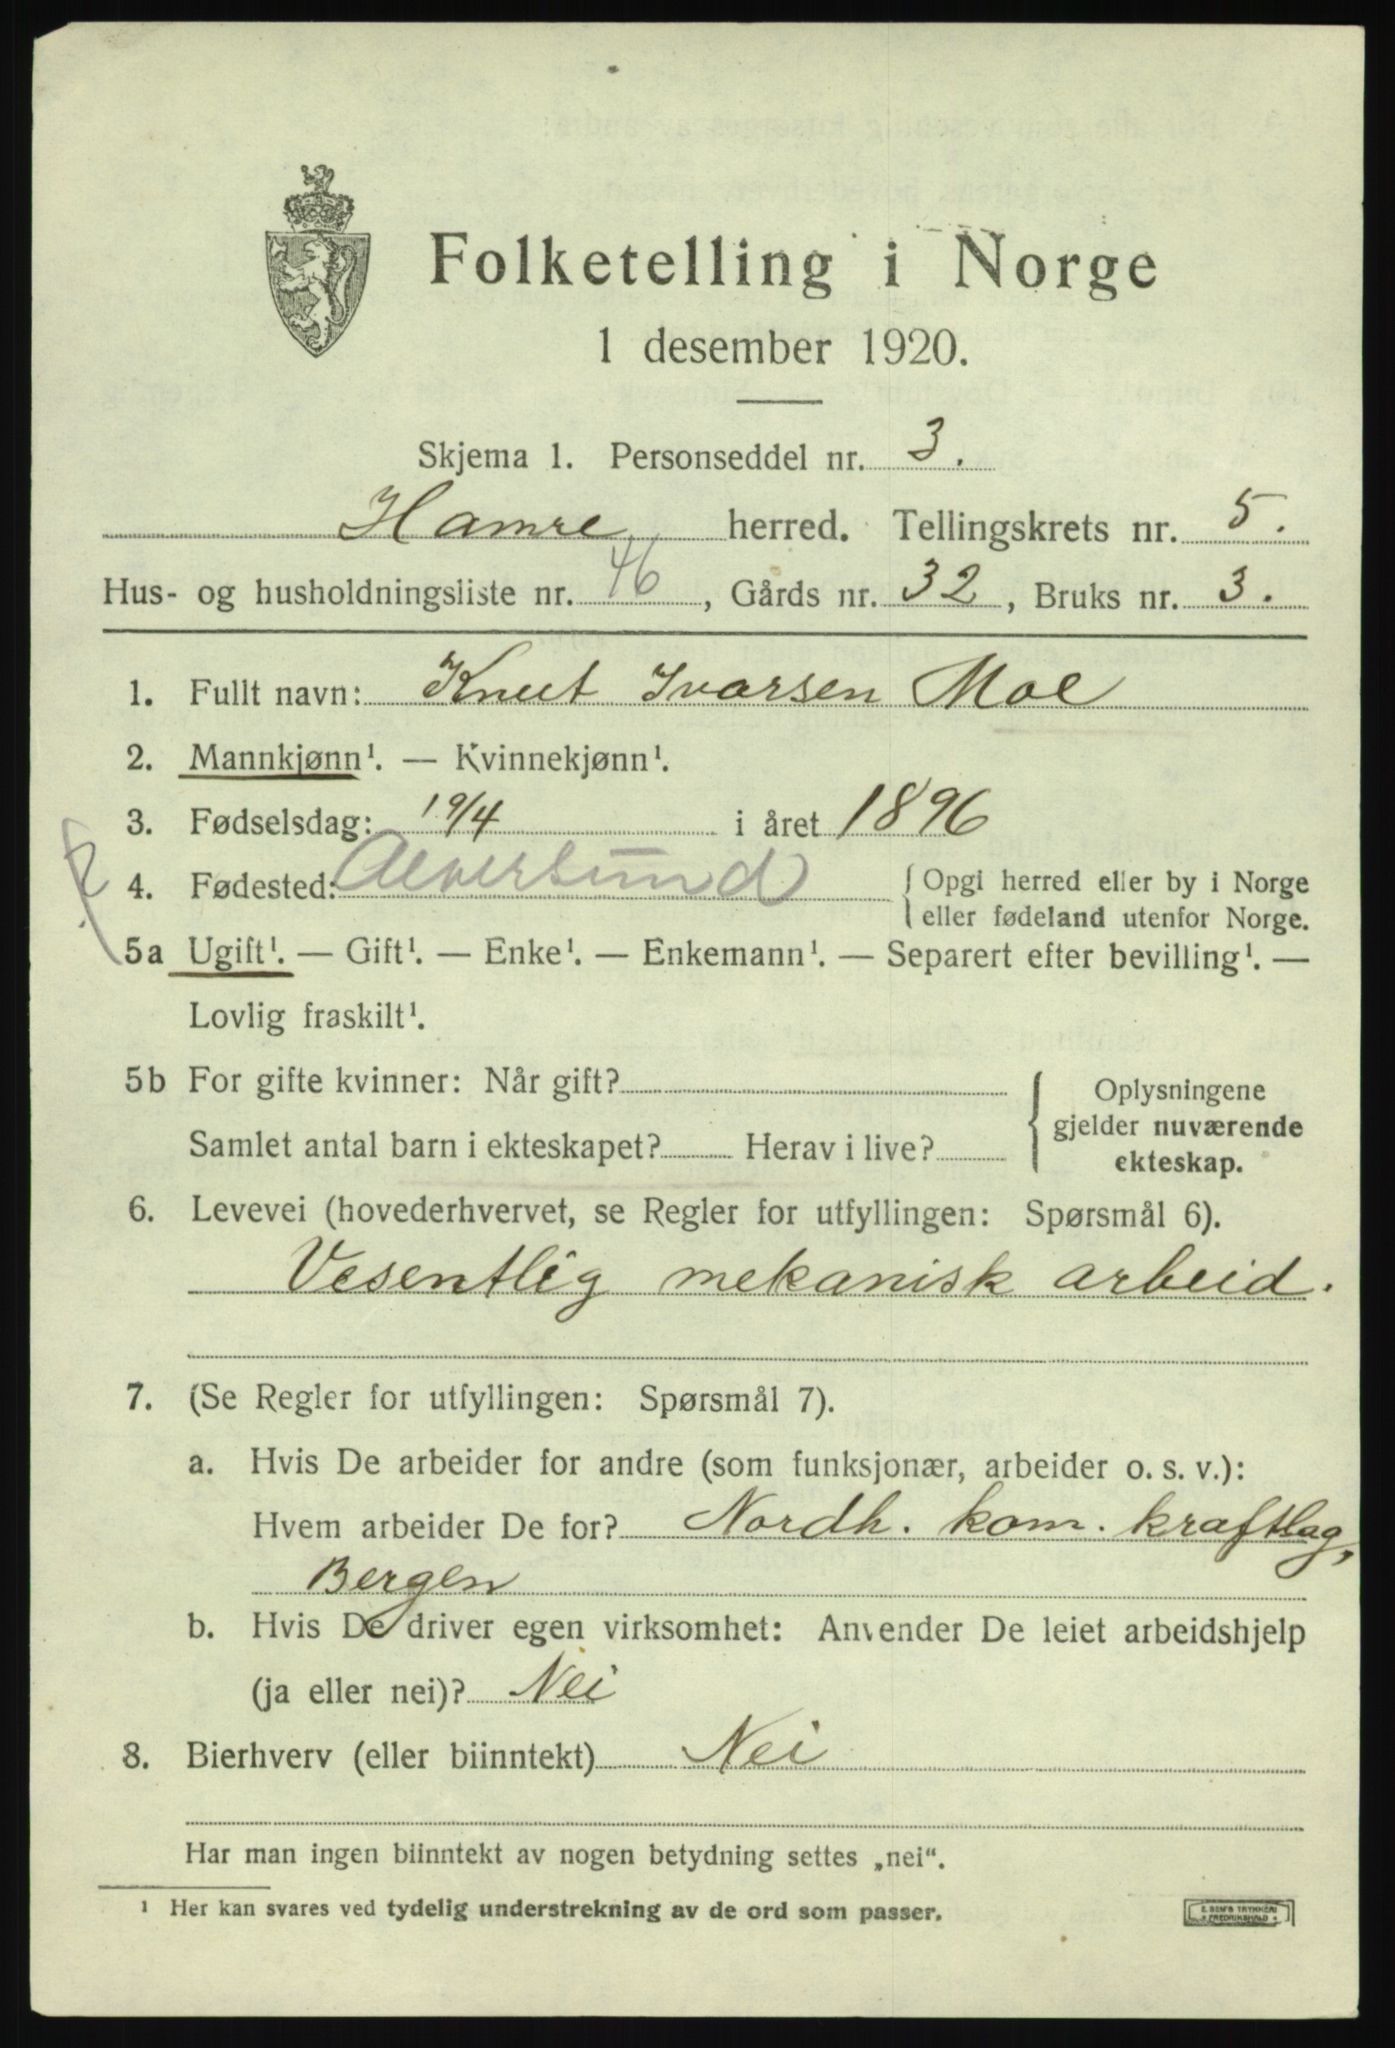 Folketelling i Norge
1 desember 1920.
Skjema 1. Personseddel nr. 3.
Hamre herred. Tellingskrets nr. 5.
Hus- og husholdningsliste nr. 46, Gårds nr. 32, Bruks nr. 3.
1. Fullt navn: Knut Ivarsen Moe
2. Mannkjønn¹. — Kvinnekjønn¹.
3. Fødselsdag: 19/4 i året 1896
4. Fødested: Alversund { Opgi herred eller by i Norge
eller fødeland utenfor Norge.
5a Ugift¹. — Gift¹. — Enke¹. — Enkemann¹. — Separert efter bevilling¹. —
Lovlig fraskilt¹.
5b For gifte kvinner: Når gift?
Samlet antal barn i ekteskapet? Herav i live?
{ Oplysningene
gjelder nuværende
ekteskap.
6. Levevei (hovederhvervet, se Regler for utfyllingen: Spørsmål 6).
Vesentlig mekanisk arbeid.
7. (Se Regler for utfyllingen: Spørsmål 7).
a. Hvis De arbeider for andre (som funksjonær, arbeider o. s. v.):
Hvem arbeider De for? Nordh. kom. kraftlag,
Bergen
b. Hvis De driver egen virksomhet: Anvender De leiet arbeidshjelp
(ja eller nei)? Nei
8. Bierhverv (eller biinntekt) Nei
Har man ingen biinntekt av nogen betydning settes „nei“.
¹ Her kan svares ved tydelig understrekning av de ord som passer.
E. SEM'S TRYKKERI
FREDRIKSHALD